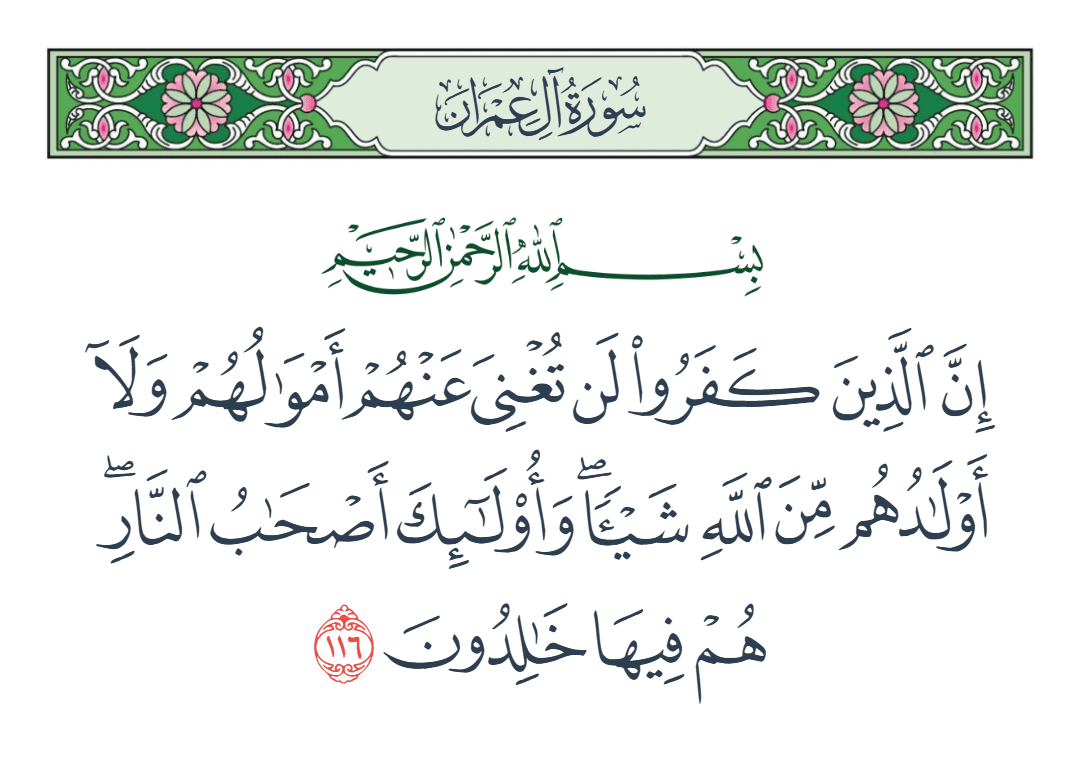 سُورَةُ آلِ عِمْرَانَ
بِسْمِ ٱللَّهِ ٱلرَّحْمَٰنِ ٱلرَّحِيمِ
إِنَّ ٱلَّذِينَ كَفَرُوا۟ لَن تُغْنِىَ عَنْهُمْ أَمْوَٰلُهُمْ وَلَآ
أَوْلَٰدُهُم مِّنَ ٱللَّهِ شَيْـًٔا ۖ وَأُو۟لَٰٓئِكَ أَصْحَٰبُ ٱلنَّارِ ۖ
هُمْ فِيهَا خَٰلِدُونَ ١١٦